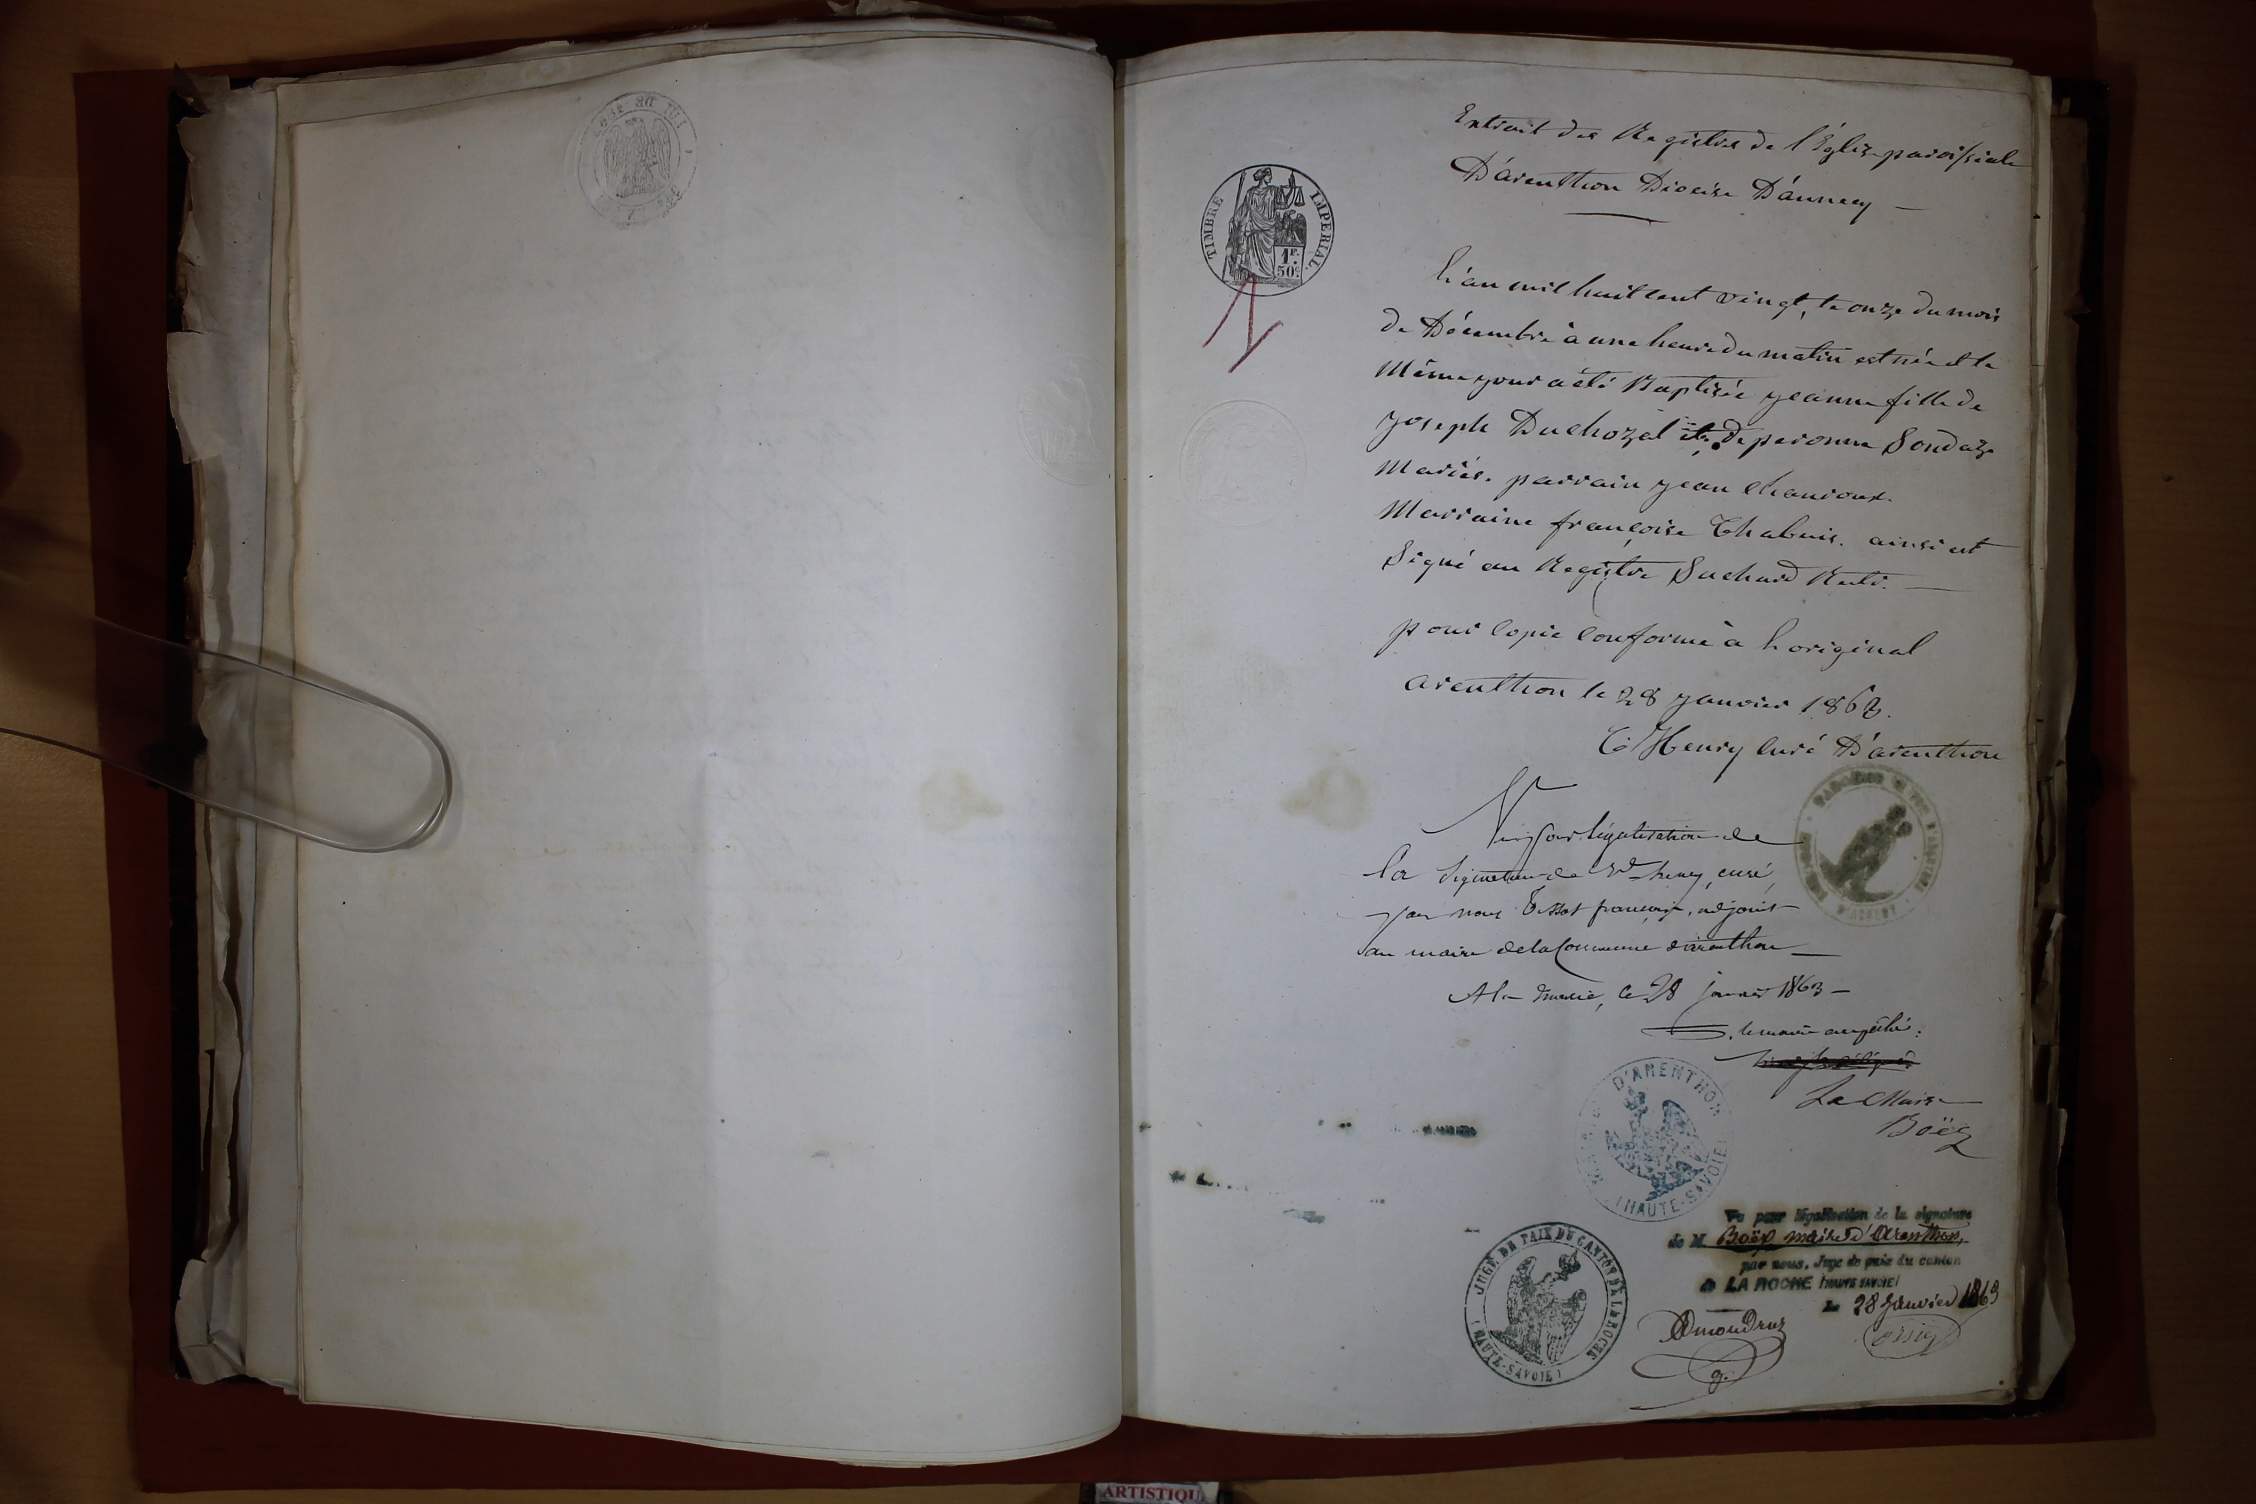 Extrait des Registres de l'Église paroissiale
D'arenthon Diocèse D'annecy —
TIMBRE IMPERIAL.
1F. 50C.
L'an mil huit cent vingt, le onze du mois
de Décembre à une heure du matin est née et le
même jour a été Baptisée jeanne fille de
joseph Duchozal et De peronne Sondaz
mariés. parrain jean chanroux.
Marraine françoise Chabuis. ainsi est
Signé au Registre Suchard Rect.
pour copie conforme à L'original
arenthon le 28 janvier 1863.
Henry curé D'arenthon
Vu pour légalisation de
la signature de Rd henry, curé,
par nous Tissot françois, adjoint
au maire de la Commune d'arenthon —
A la mairie, le 28 janvier 1863 —
le maire empêché.
Le Maire
Boëz
D'ARENTHON
(HAUTE-SAVOIE)
Vu pour légalisation de la signature
de M. Boëz maire d'Arenthon,
par nous, Juge de paix du canton
de LA ROCHE (HAUTE SAVOIE)
Le 28 janvier 1863
JUGE DE PAIX DU CANTON DE LA ROCHE
(HAUTE-SAVOIE)
g.
ARTISTIQU